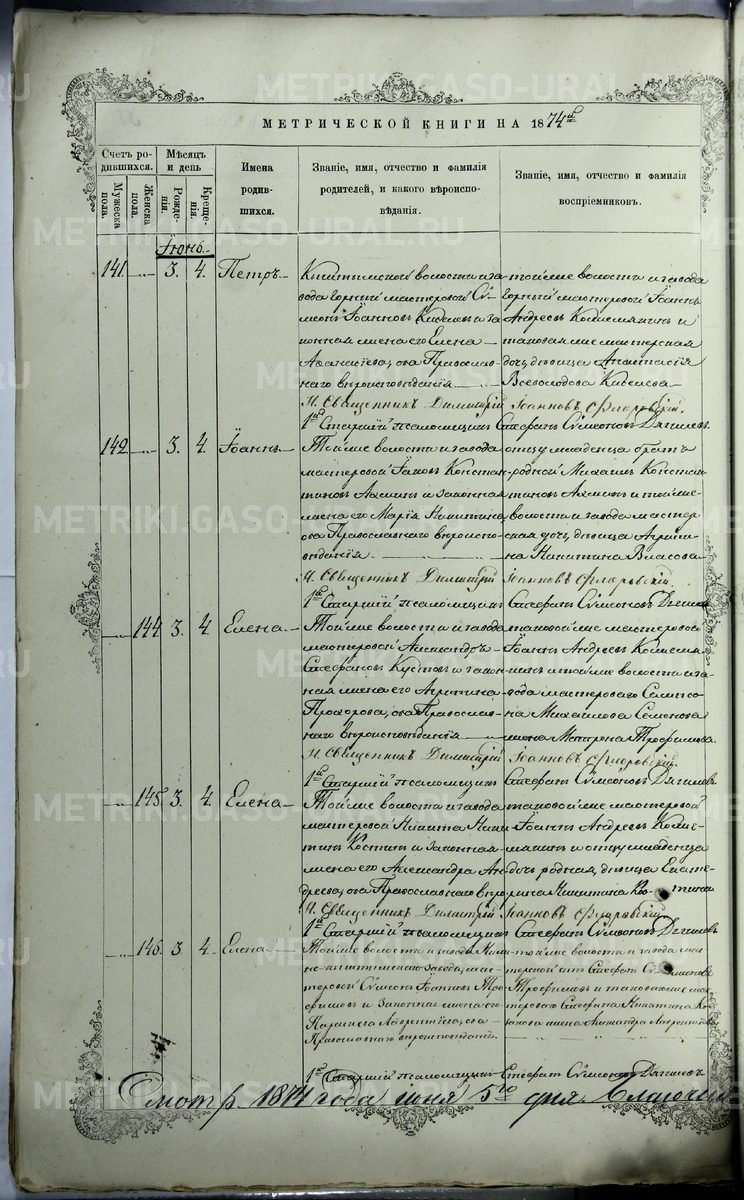 МЕТРИЧЕСКОЙ КНИГИ НА 1874й
Счетъ ро-
дившихся.
Мужеска
пола.
Женска
пола.
Мѣсяцъ
и день
Рожде-
нія.
Креще-
нія.
Имена
родив-
шихся.
Званіе, имя, отчество и фамилія
родителей, и какого вѣроиспо-
вѣданія.
Званіе, имя, отчество и фамилія
воспріемниковъ.
Іюнь
141 3. 4. Петръ
волости и за-
вода горный мастеровой Си-
меонъ Іоанновъ Киселевъ и за-
конная жена его Елена
Аѳанасіева, оба Православ-
наго вѣроисповѣданія
той же волости и завода
горный мастеровой Іоаннъ
Андреевъ и
таковая же мастерская
дочь, дѣвица Анастасія
Всеволодова Киселева
Н. Священникъ Димитрій Іоанновъ Флоровскій.
1й Старшій псаломщикъ Стефанъ Сѵмеоновъ Дягилевъ.
142 3. 4. Іоаннъ
Той же волости и завода
мастеровой Іаковъ Констан-
тиновъ и законная
жена его Марія Никитина,
оба Православнаго вѣроиспо-
вѣданія
отцу младенца братъ
родной Михаилъ Констан-
тиновъ и той же
волости и завода мастер-
ская дочь, дѣвица Агрипи-
на Никитина Власова
Н. Священникъ Димитрій Іоанновъ Флоровскій.
1й Старшій псаломщикъ Стефанъ Сѵмеоновъ Дягилевъ
144 3. 4. Елена
Той же волости и завода
мастеровой Александръ
Стефановъ Кустовъ и закон-
ная жена его Агрипина
Прохорова, оба Православ-
наго вѣроисповѣданія
таковой же мастеровой
Іоаннъ Андреевъ
и той же волости и за-
вода мастероваго Сампсо-
на Михаилова Семенова
жена Матрона Трофимова.
Н. Священникъ Димитрій Іоанновъ Флоровскій.
1й Старшій псаломщикъ Стефанъ Сѵмеоновъ Дягилевъ.
145. 3. 4. Елена
Той же волости и завода
мастеровой Никита Ники-
тинъ Костинъ и законная
жена его Александра Ан-
дреева, оба Православнаго вѣро-
таковой же мастеровой
Іоаннъ Андреевъ
и отцу младенца
дочь родная, дѣвица Екате-
рина Никитина Костина
Н. Священникъ Димитрій Іоанновъ Флоровскій.
1й Старшій псаломщикъ Стефанъ Сѵмеоновъ Дягилевъ
146. 3 4. Елена
Той же волости и завода Ниж-
не-кыштымскаго завода, мас-
теровой Сѵмеонъ Іоанновъ Тро-
фимовъ и законная жена его
Лаврентіева, оба
Православнаго вѣроисповѣданій.
той же волости и завода мас-
Стефанъ Сѵмеоновъ
Трофимовъ и таковаго же мас-
тероваго Стефана Никитина
жена Александра Лаврентіева
1й Старшій псаломщикъ Стефанъ Сѵмеоновъ Дягилевъ
Смотр. 1874 года іюня 5го дня. Благочин
METRIKI.GASO-URAL.RU